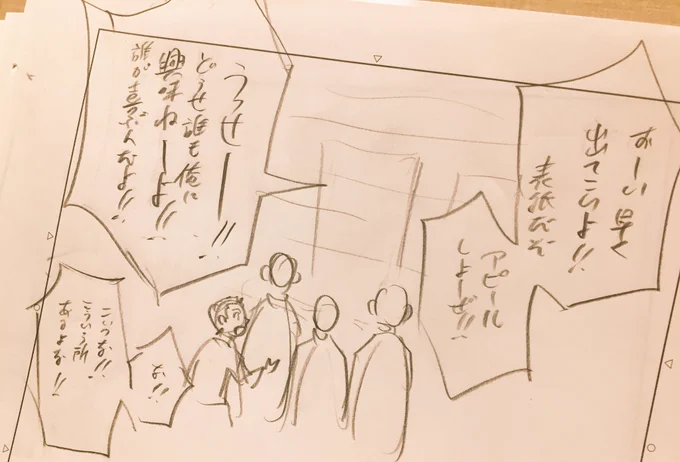 おーい早く
出てこいよ!!
表紙だぞ
アピール
しよーぜ!!
うっせー!!
どうせ誰も俺に
興味ねーよ!!
誰が喜ぶんだよ!!
お!!
こいつな!!
こういう所
あるよな!!